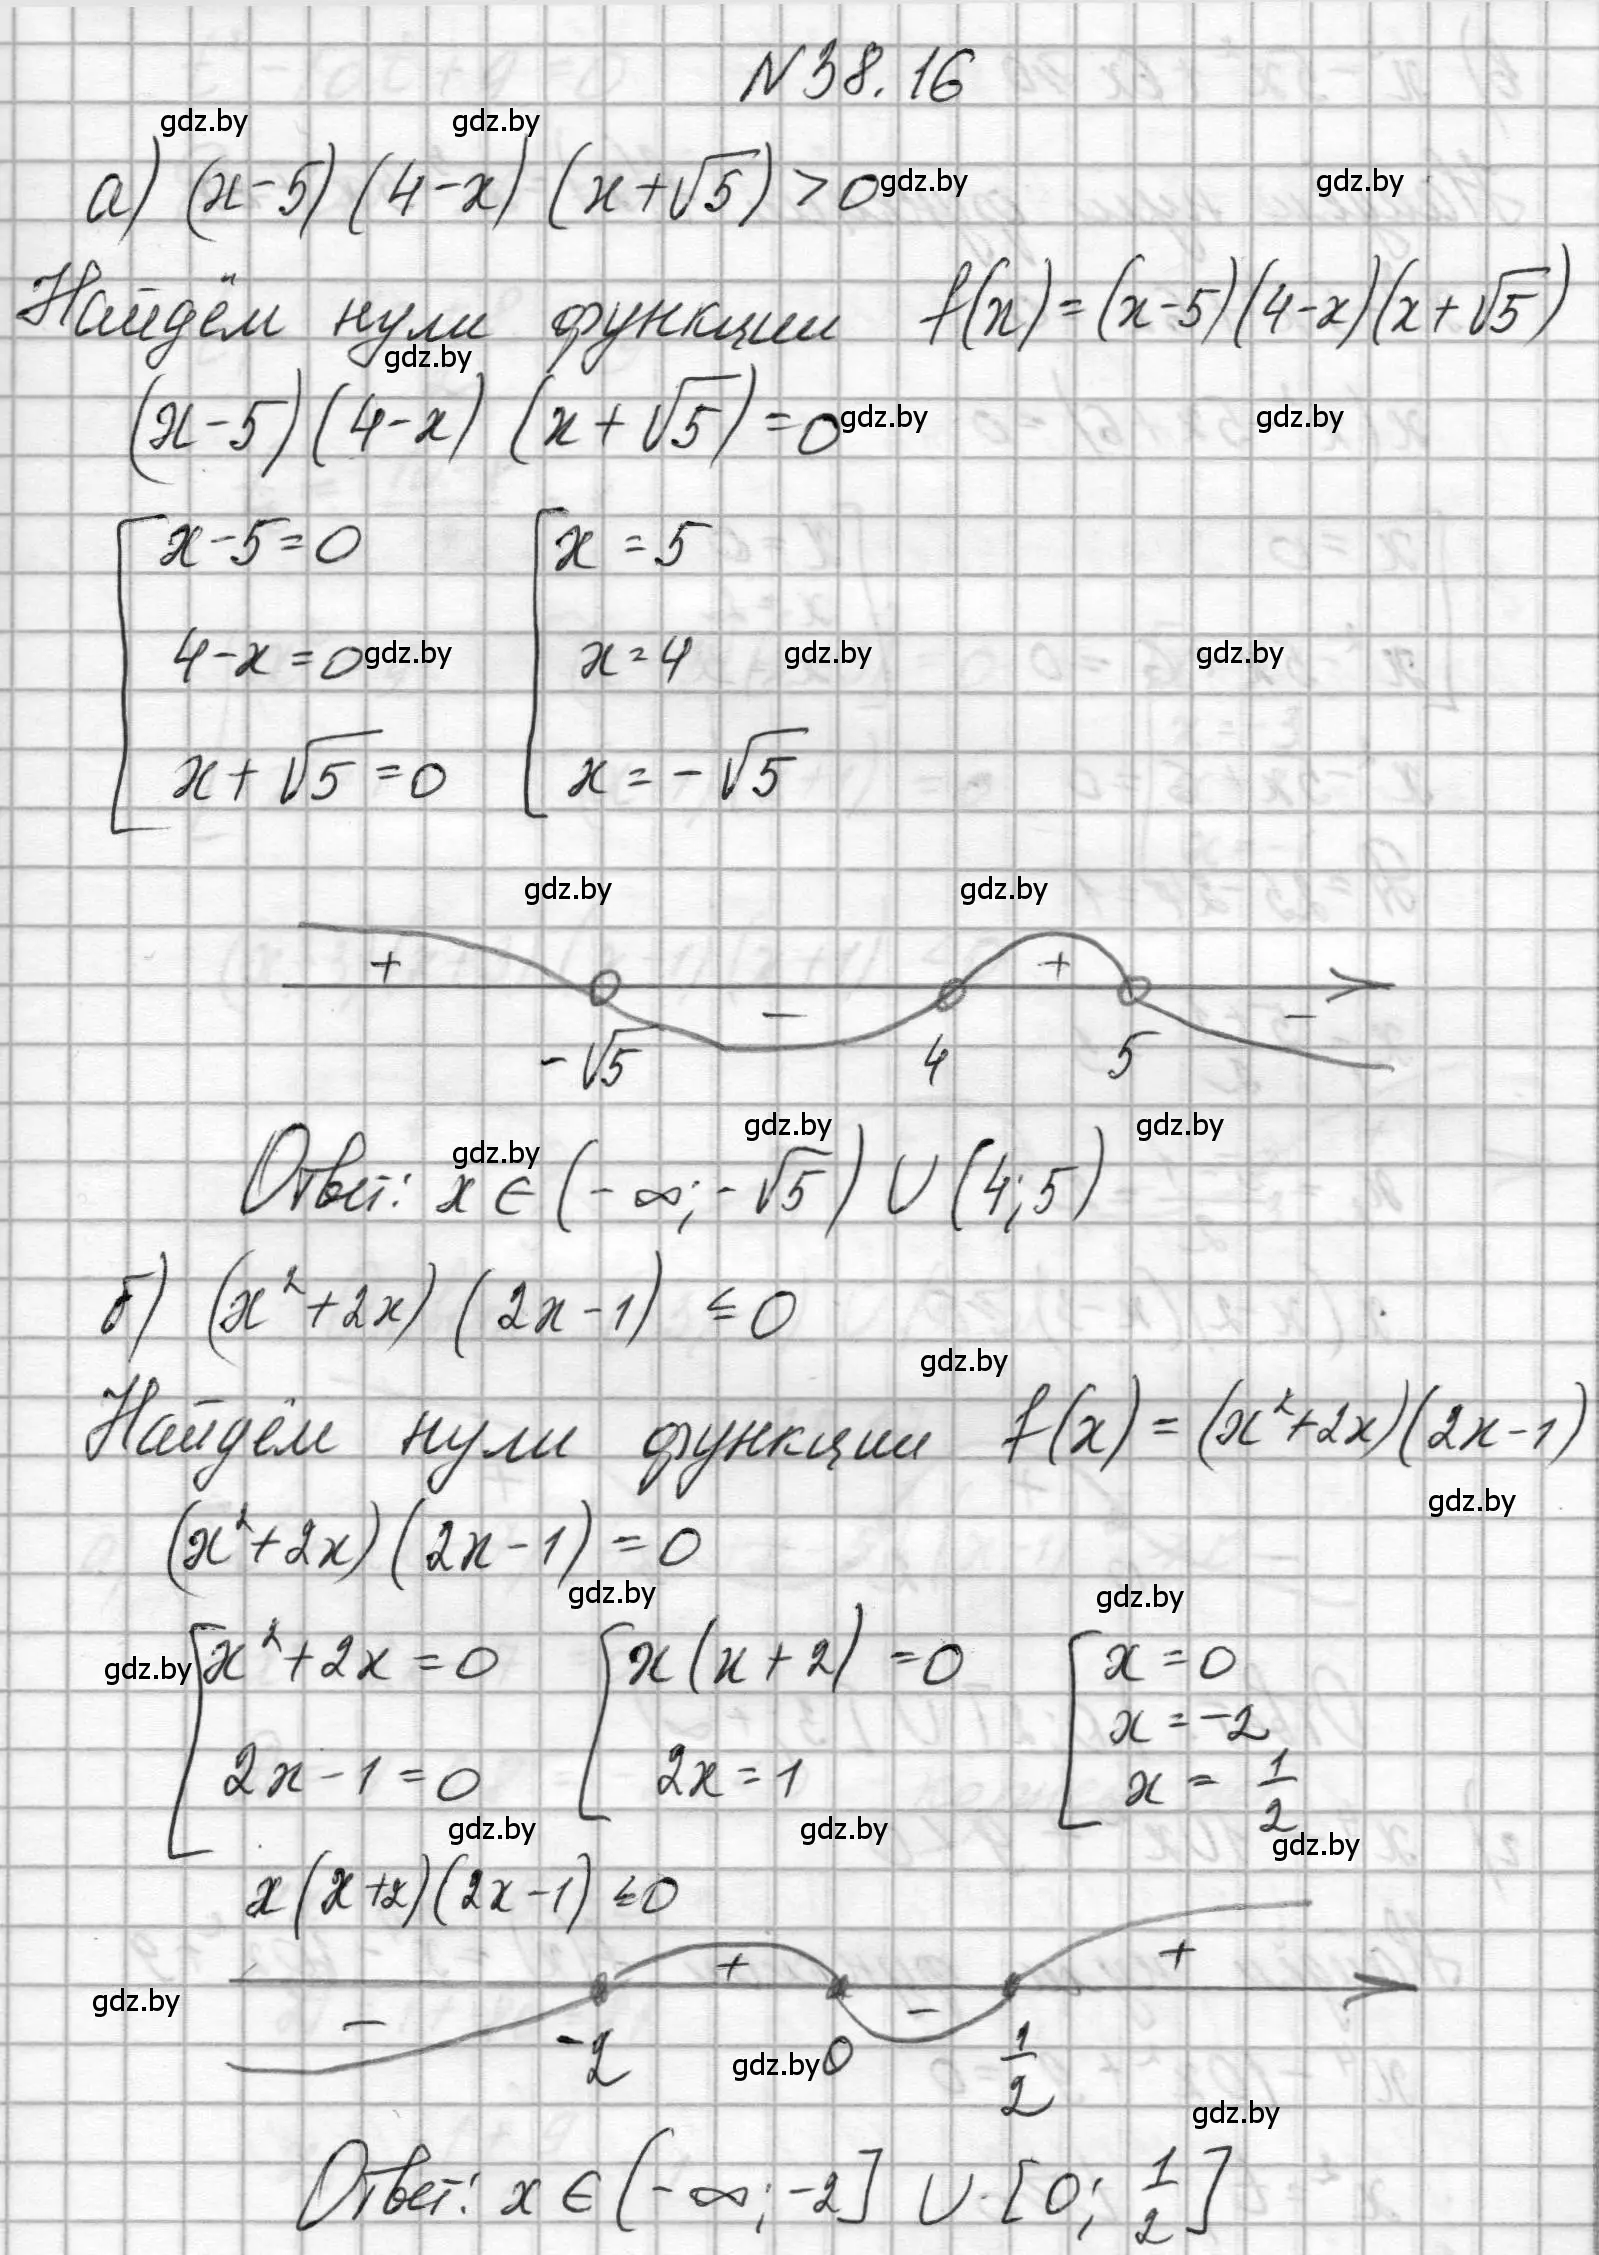 N 38.16
gdz.by gdz.by
а) (x-5) (4-x) (x+√5) > 0 gdz.by gdz.by
Найдём нули функции f(x)=(x-5)(4-x)(x+√5)
gdz.by
(x-5)(4-x) (x+√5)=0 gdz.by gdz.by
[ x-5=0 [ x=5
4-x=0 gdz.by x=4 gdz.by gdz.by
x+√5=0 x=-√5
gdz.by gdz.by
+ - + -
-√5 4 5
gdz.by gdz.by gdz.by
Ответ: x∈(-∞;-√5) ∪ (4;5)
б) (x²+2x) (2x-1) ≤0
gdz.by
Найдём нули функции f(x)=(x²+2x)(2x-1)
gdz.by
(x²+2x)(2x-1)=0
gdz.by gdz.by
gdz.by [ x²+2x=0 [ x(x+2)=0 [ x=0
x=-2
2x-1=0 2x=1 x=1/2
gdz.by gdz.by gdz.by
x(x+2)(2x-1)≤0
gdz.by - + - +
-2 gdz.by 0 1/2
gdz.by
Ответ: x∈(-∞;-2] ∪ [0; 1/2]